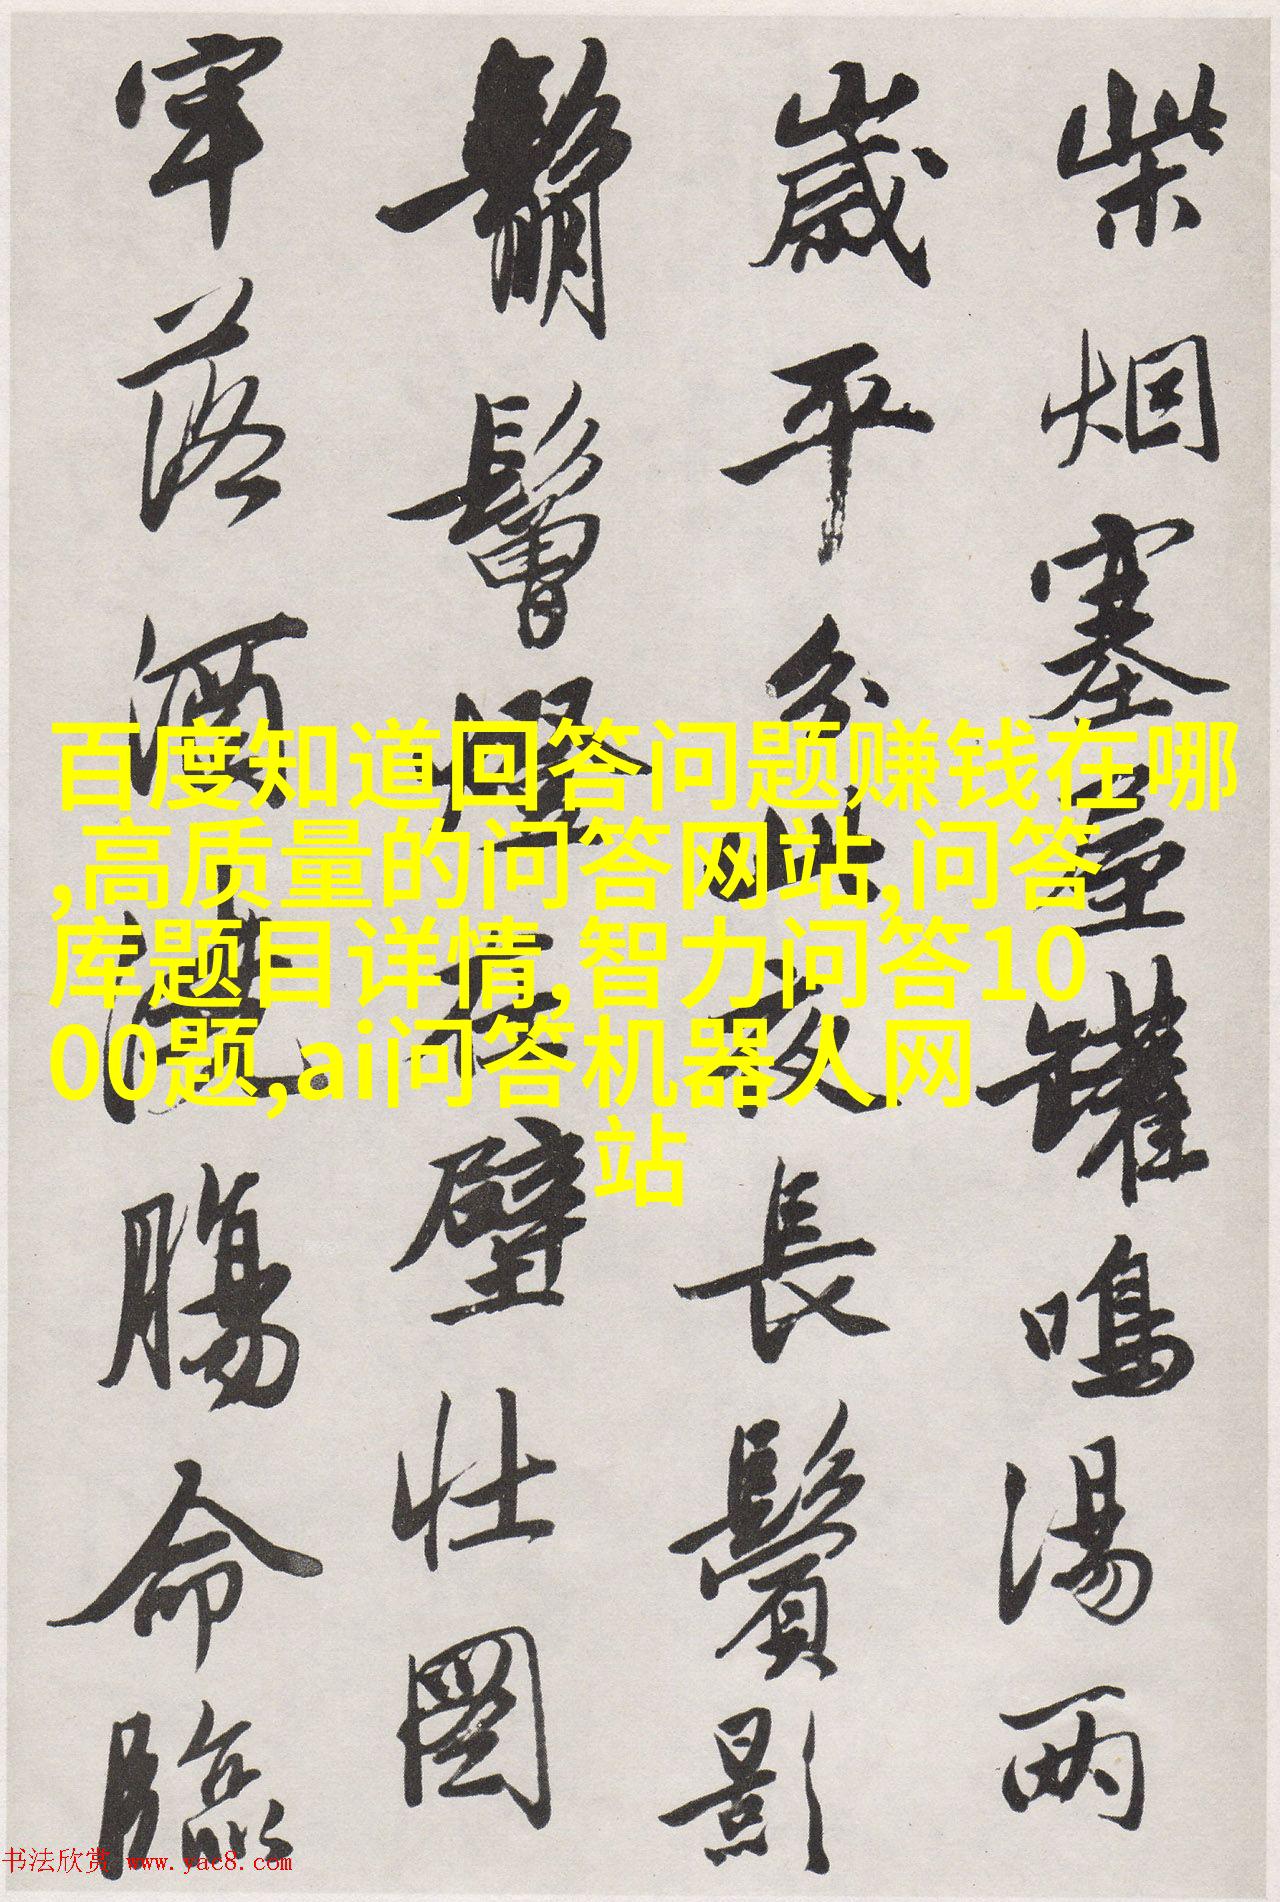 柴烟塞屋罐鳴湯两
歲平分此夜長鬢影
鬅鬙燈在壁壮圖
牢落酒澆腸命臨
百度知道回答问题赚钱在哪
,高质量的问答网站,问答
库题目详情,智力问答10
00题,ai问答机器人网
站
书法欣赏 www.yac8.com